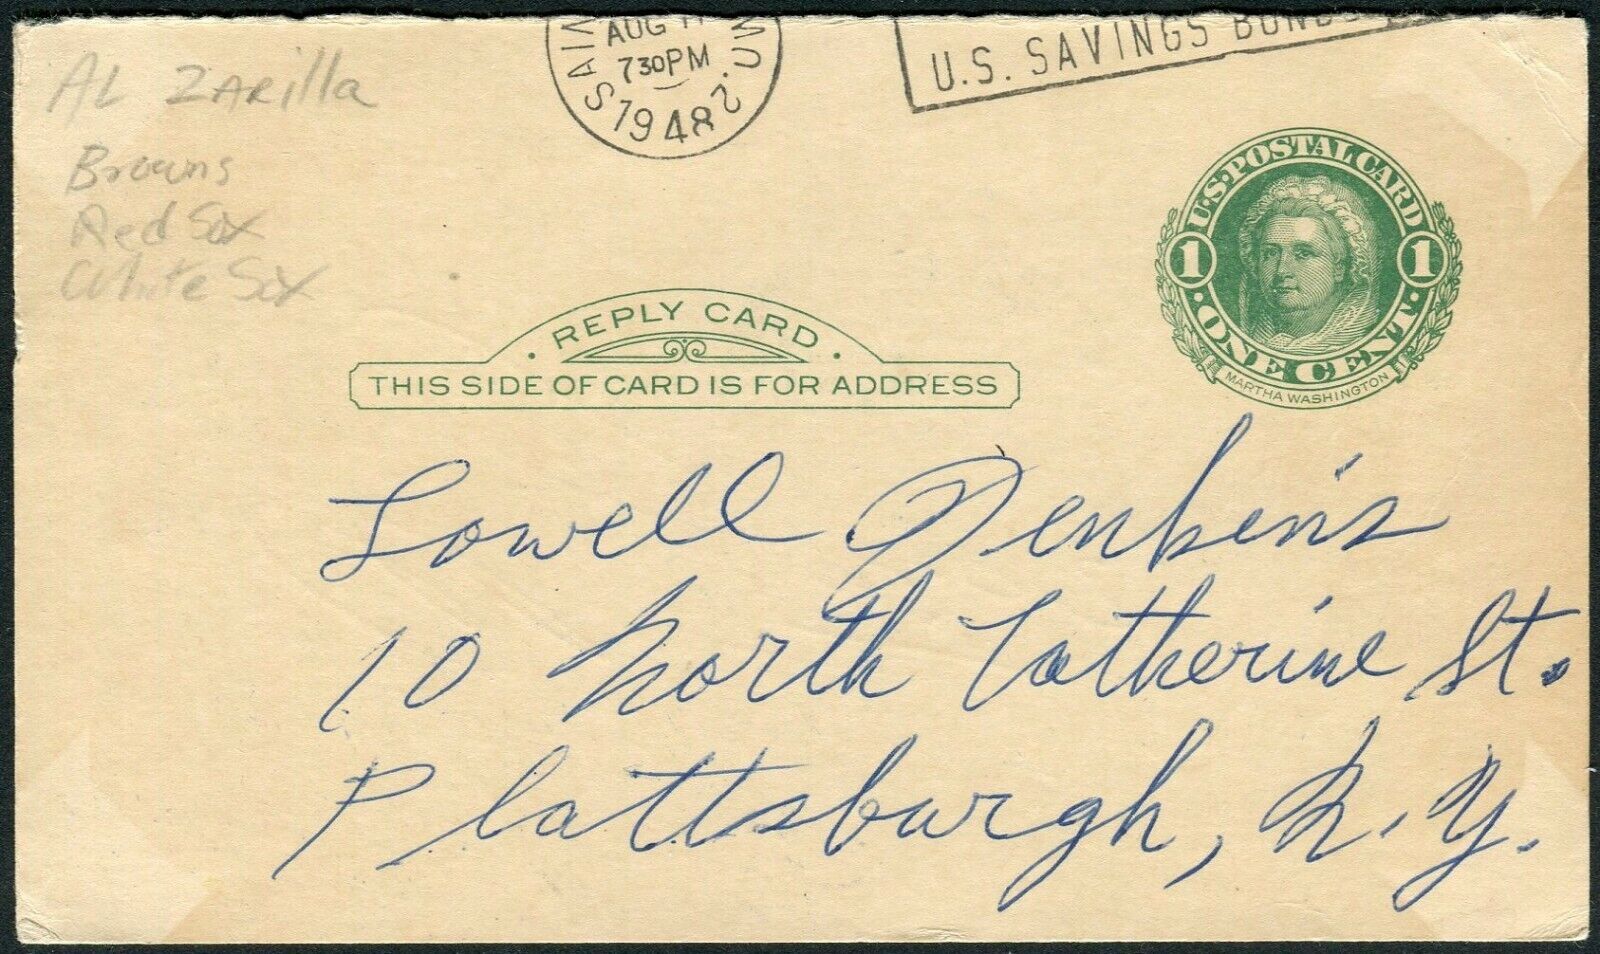 AL ZARilla
Browns
Red Sox
White Sox
AUG
7 30 PM
1948
U.S. SAVINGS BONDS
U.S. POSTAL CARD
1 1
ONE CENT
MARTHA WASHINGTON
REPLY CARD
THIS SIDE OF CARD IS FOR ADDRESS
Lowell Jenkins
10 North Catherine St.
Plattsburgh, N.Y.